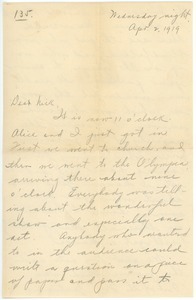 135.
Wednesday night.
Apr. 2, 1919
Dear
It is now 11 o'clock.
Alice and I just got in
First we went to church and
then we went to the Olympia
arriving there about nine
o'clock. Everybody was tell-
ing about the wonderful
show and especially one
act. Anybody who wanted
to in the audience could
write a question on a piece
of paper and pass it to